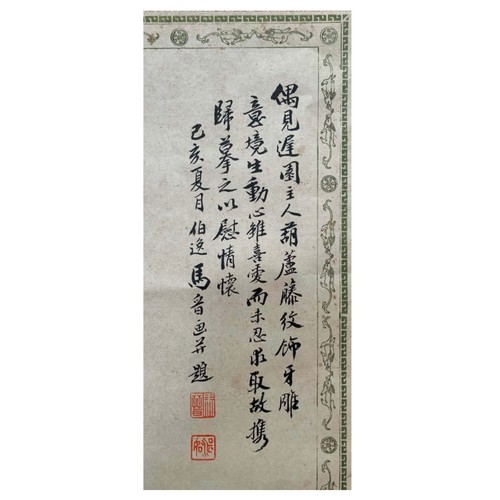 偶見遲園主人葫蘆藤紋飾牙雕
意境生動心雖喜愛而未忍求取故携
歸摹之以慰情懷
己亥夏月伯逸馬晋画并題